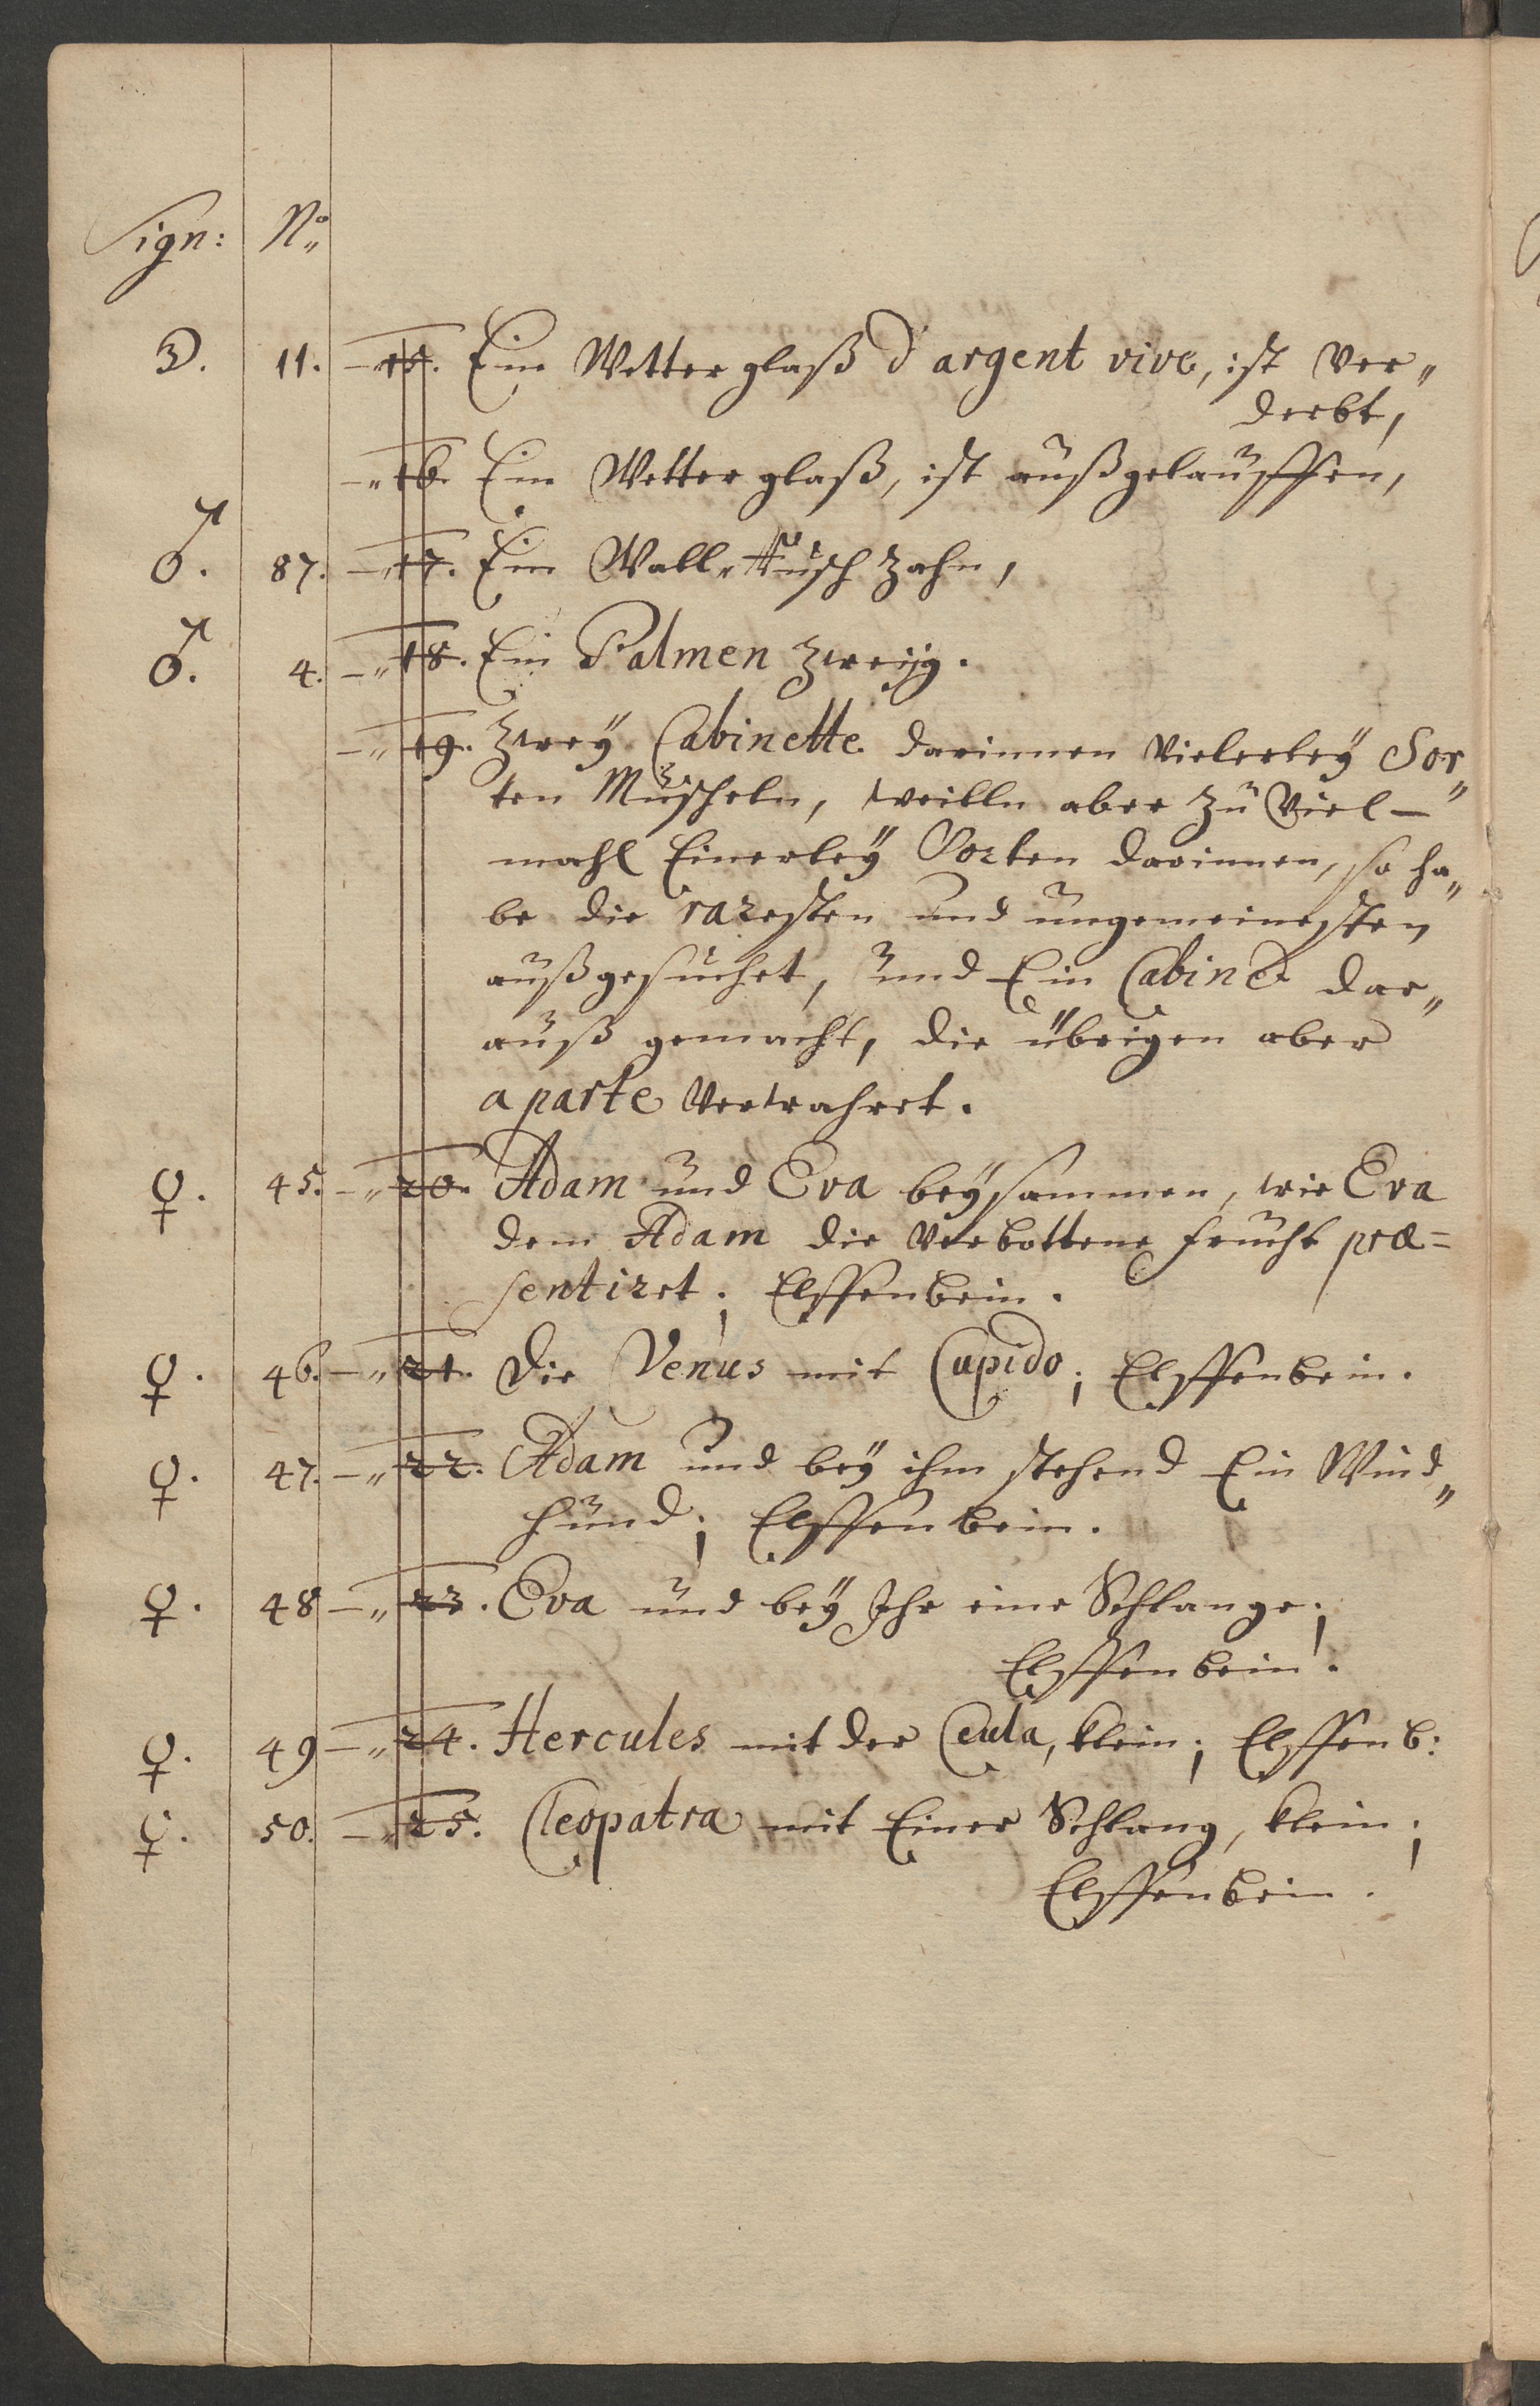 Sign: No
☽. 11. — 15. Ein Wetter glaß d'argent vive, ist ver„
derbt,
—„ 16. Ein Wetter glaß, ist außgelauffen,
♂. 87. —„ 17. Ein Wall„ fisch Zahn,
♂. 4. —„ 18. Ein Palmen Zweijg.
—„ 19. Zweÿ Cabinette darinnen vielerleÿ Sor„
ten Muscheln, weilln aber zu viel —
mahl Einerleÿ Sorten darinnen, so ha„
be die raresten und ungemeinesten
außgesuchet, und Ein Cabinet dar„
auß gemacht, die übrigen aber
a parte verwahret.
♀. 45. —„ 20. Adam und Eva beÿsammen, wie Eva
dem Adam die verbottene frucht præ=
sentiret; Elffenbein.
♀. 46. —„ 21. Die Venus mit Cupido; Elffenbein.
♀. 47. —„ 22. Adam und beÿ ihm stehend Ein Wind„
hund; Elffenbein.
♀. 48 —„ 23. Eva und beÿ Ihr eine Schlange;
Elffenbein.
♀. 49 —„ 24. Hercules mit der Ceula, klein; Elffenb:
♀. 50. —„ 25. Cleopatra mit Einer Schlang, klein;
Elffenbein.